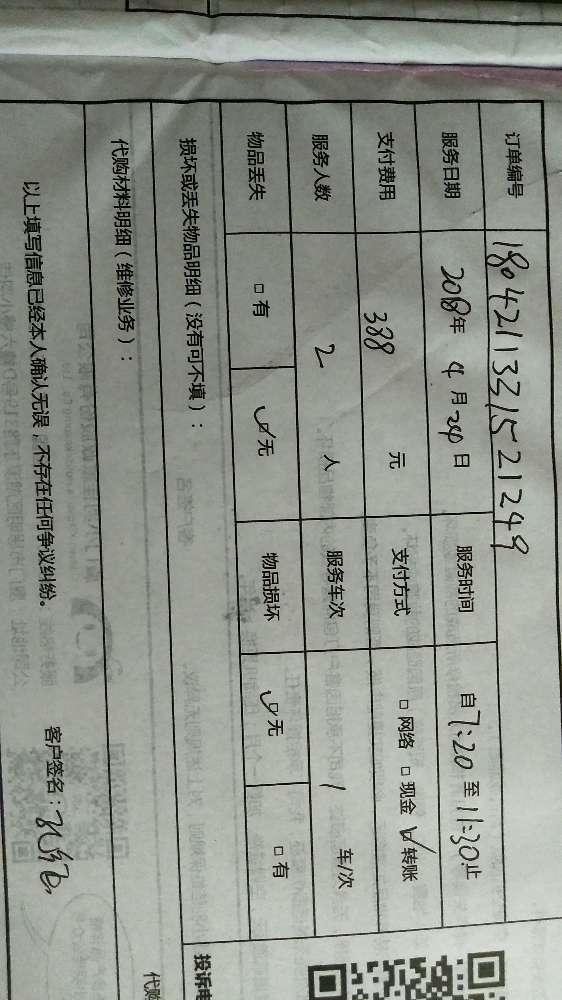 订单编号 1804211331521249
服务日期 2018年 4月24日 服务时间 自7:20至11:30止
支付费用 338 元 支付方式 □网络 □现金 ☑转账
服务人数 2 人 服务车次 1 车/次
物品丢失 □有 ☑无 物品损坏 ☑无 □有
损坏或丢失物品明细（没有可不填）：
投诉电
代购材料明细（维修业务）：
代购
以上填写信息已经本人确认无误，不存在任何争议纠纷。 客户签名：